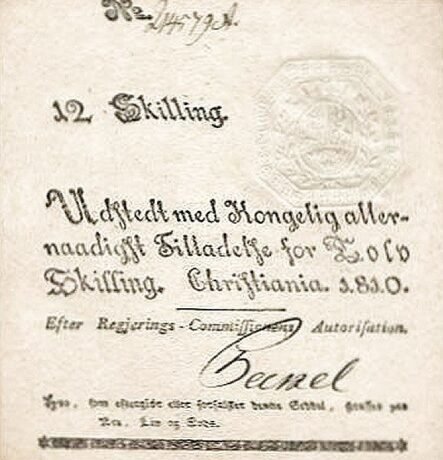 No. 24579A.
12 Skilling.
Udstedt med Kongelig aller-
naadigst Tilladelse for Tolv
Skilling. Christiania. 1810.
Efter Regjerings-Commissionens Autorisation.
eftergiør eller forfalsker denne Seddel, straffes paa
Ære, Liv og Gods.